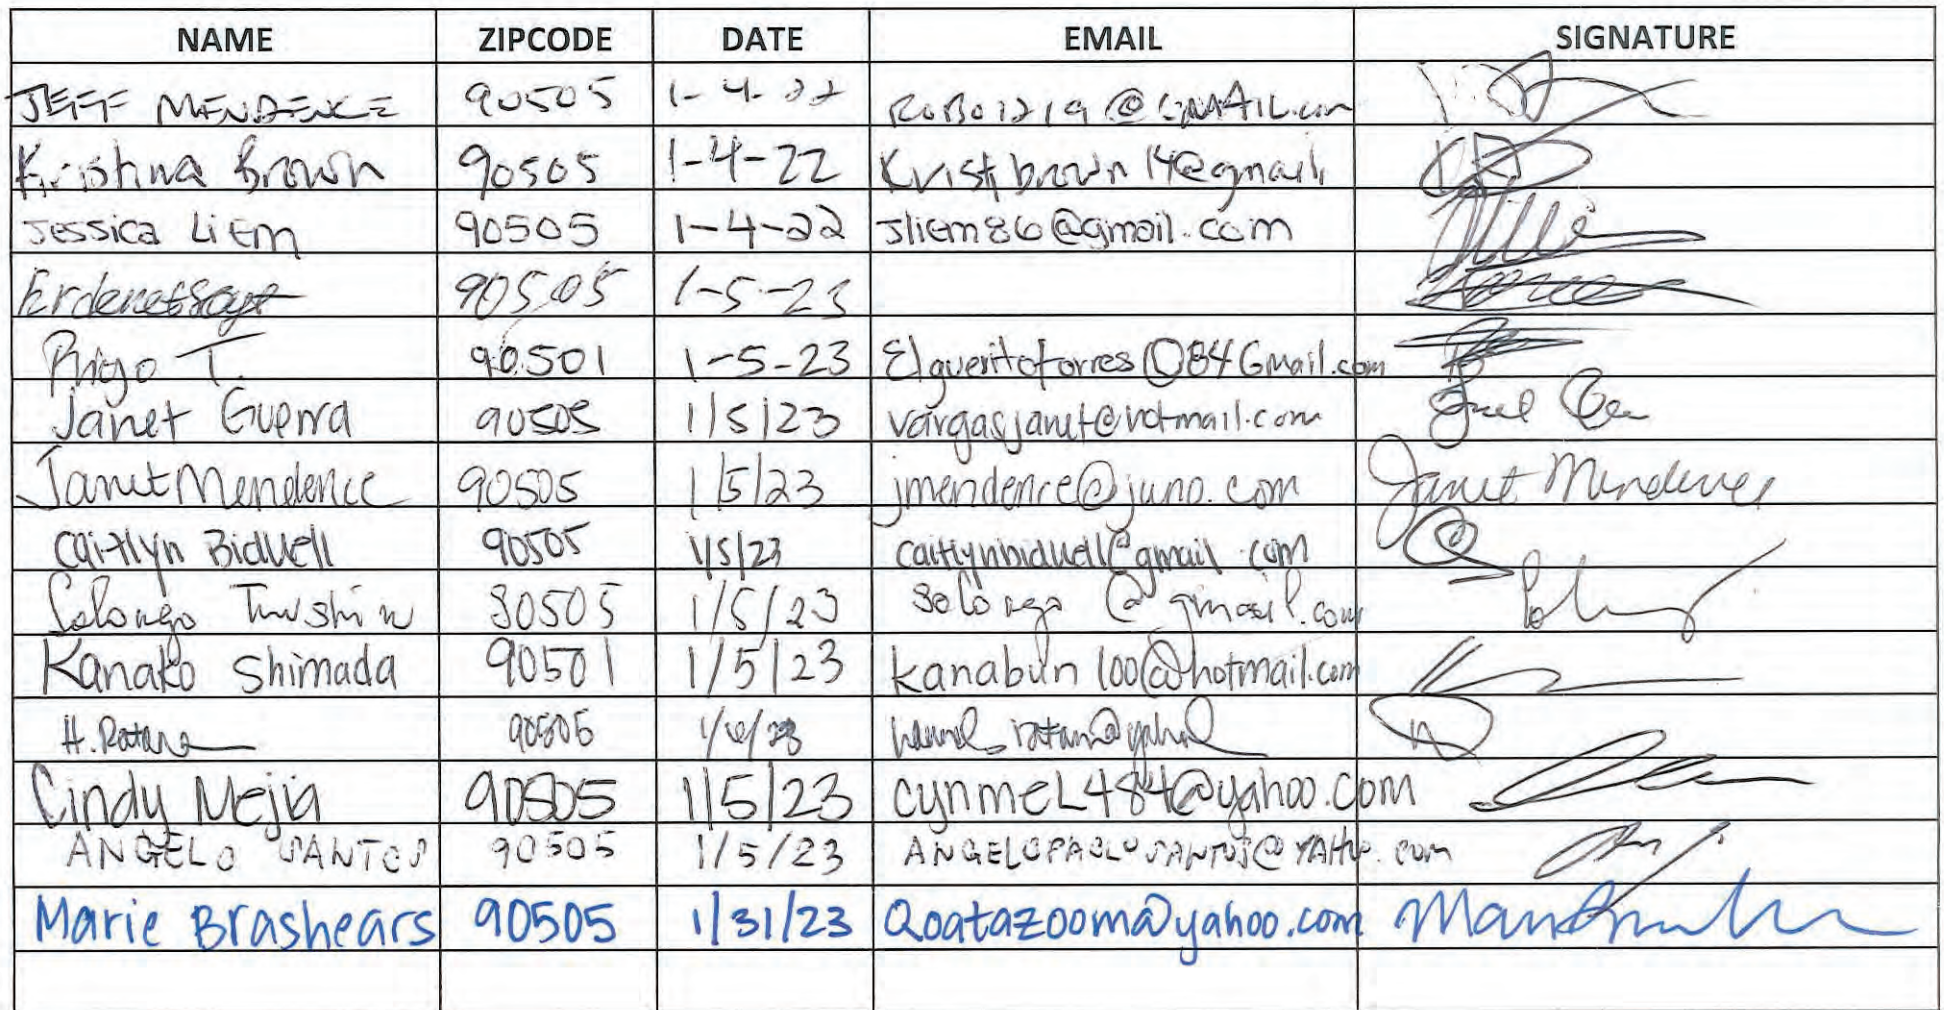 NAME ZIPCODE DATE EMAIL SIGNATURE
JEFF MENDENCE 90505 1-4-22 ROBO1219@GMAIL.com
Kristina Brown 90505 1-4-22 Kristibrown14@gmail
Jessica Liem 90505 1-4-22 Jliem86@gmail.com
90505 1-5-23
Rigo T. 90501 1-5-23 Elgueritotorres084Gmail.com
Janet Guerra 90505 1/5/23 vargasjanet@hotmail.com
Janet Mendence 90505 1/5/23 jmendence@juno.com Janet Mendence
Caitlyn Bidwell 90505 1/5/23 caitlynbidwell@gmail.com
Solongo 90505 1/5/23 solongo@gmail.com
Kanako Shimada 90501 1/5/23 kanabun100@hotmail.com
H. Ratana 90505
Cindy Mejia 90505 1/5/23 cynmeL484@yahoo.com
ANGELO SANTOS 90505 1/5/23 ANGELOPAOLOSANTOS@YAHOO.com
Marie Brashears 90505 1/31/23 Qoatazoom@yahoo.com